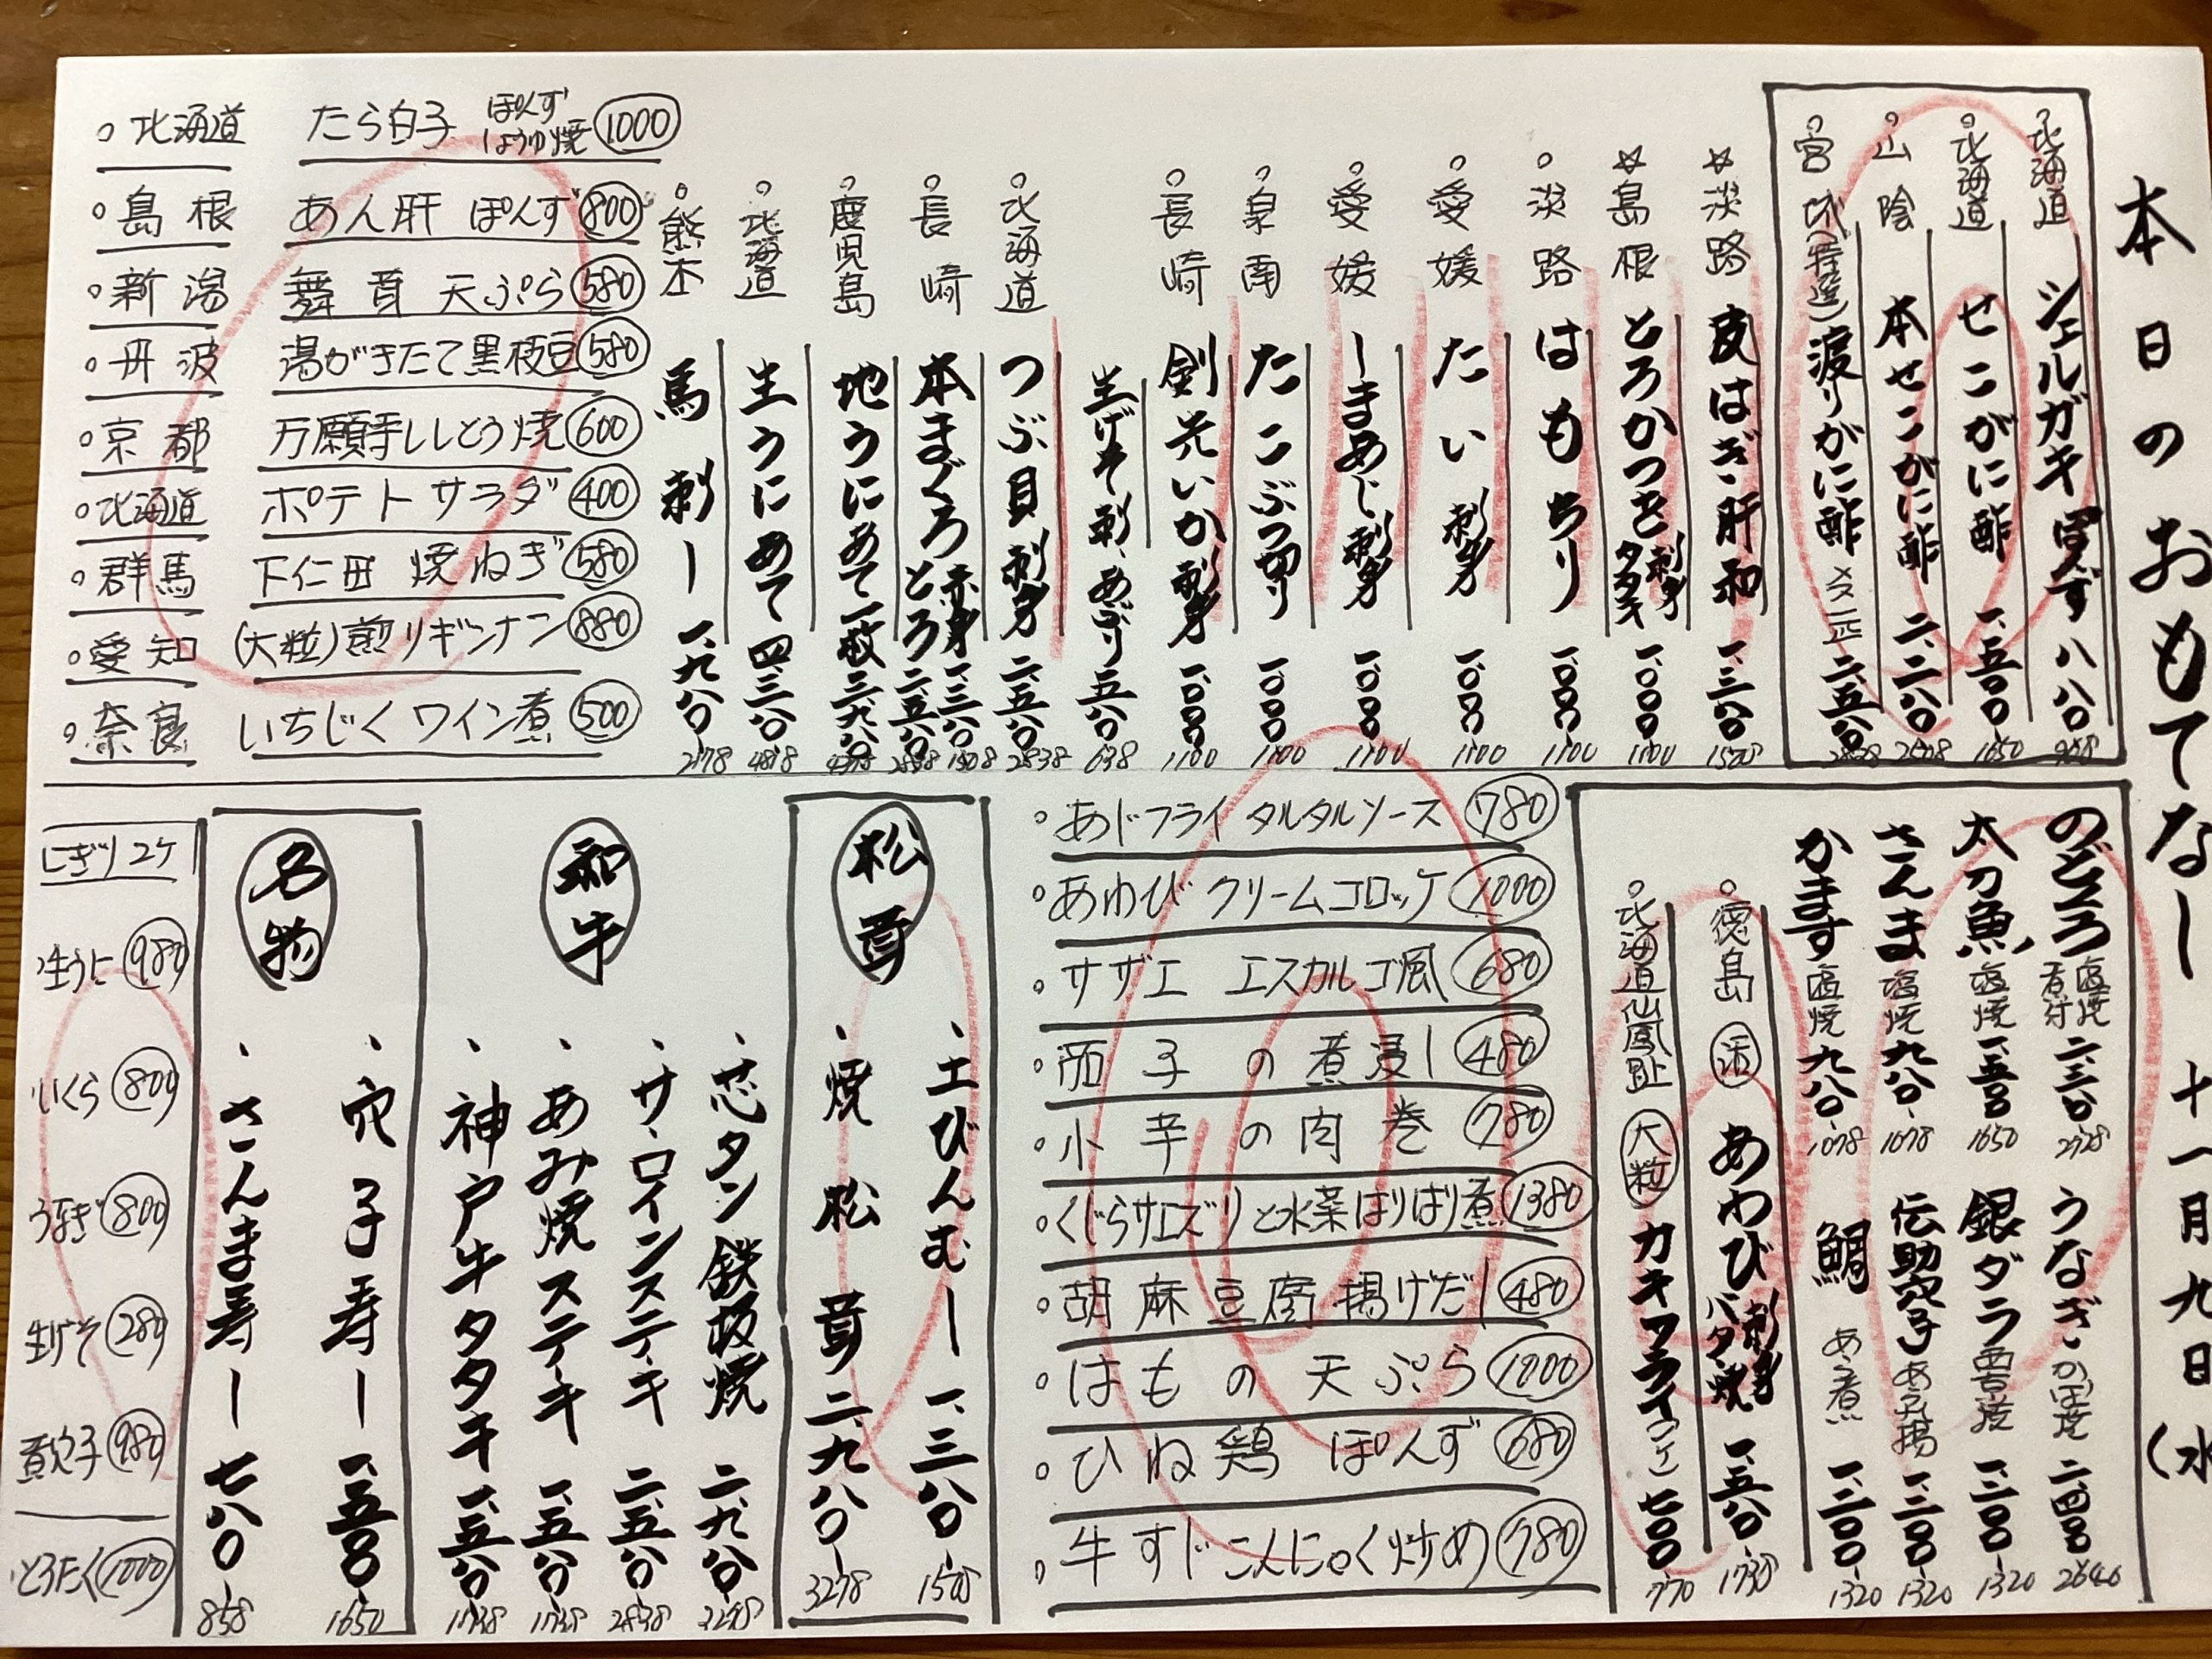 本日のおもてなし 十一月九日(水
北海道 シェルガキ ぽんず 八八〇 968
北海道 せこがに酢 一、五〇〇 1650
山陰 本せこがに酢 二、二八〇 2508
宮城(特選) 渡りがに酢 メス一匹 二、五八〇 2838
☆淡路 皮はぎ肝和 一、三八〇 1508
☆島根 とろかつを 刺身 タタキ 一、〇〇〇 1100
淡路 はもちり 一、〇〇〇 1100
愛媛 たい 刺身 一、〇〇〇 1100
愛媛 しまあじ 刺身 一、〇〇〇 1100
泉南 たこぶつ切り 一、〇〇〇 1100
長崎 剣先いか 刺身 一、〇〇〇 1100
生げそ 刺、あぶり 五八〇 638
北海道 つぶ貝 刺身 二、五八〇 2838
長崎 本まぐろ 赤身 一、三八〇 1508 とろ 二、五八〇 2838
鹿児島 地うにあて一枚 三、九八〇
北海道 生うにあて 四、三八〇 4818
熊本 馬刺し 一、九八〇 2178
北海道 たら白子 ぽんず しょうゆ焼 1000
島根 あん肝 ぽんず 800
新潟 舞茸 天ぷら 580
丹波 湯がきたて黒枝豆 580
京都 万願手ししとう焼 600
北海道 ポテトサラダ 400
群馬 下仁田 焼ねぎ 580
愛知 (大粒)煎りギンナン 880
奈良 いちじくワイン煮 500
のどぐろ 塩焼 煮付 二、三八〇 2728
太刀魚 塩焼 一、五〇〇 1650
さんま 塩焼 九八〇 1078
かます 塩焼 九八〇 1078
うなぎ かば焼 二、四〇〇 2640
銀ダラ 西京焼 一、二〇〇 1320
伝助穴子 一、二〇〇 1320
鯛 あら煮 一、二〇〇 1320
徳島 活 あわび 刺身 バター焼 一、五八〇 1738
北海道仙鳳趾 大粒 カキフライ(二ケ) 七〇〇 770
あじフライ タルタルソース 780
あわび クリームコロッケ 1000
サザエ エスカルゴ風 680
茄子の煮浸し 480
小芋の肉巻 780
くじらサエズリと水菜はりはり煮 1380
胡麻豆腐揚げだし 480
はもの天ぷら 1000
ひね鶏 ぽんず 680
牛すじこんにゃく炒め 780
松茸
土びんむし 一、三八〇 1508
焼松茸 二、九八〇 3278
和牛
芯タン鉄板焼 二、九八〇 3278
サーロインステーキ 二、五八〇 2838
あみ焼ステーキ 一、五八〇 1738
神戸牛タタキ 一、五八〇 1738
名物
穴子寿し 一、五〇〇 1650
さんま寿し 七八〇 858
にぎり 2ケ
生うに 980
いくら 800
うなぎ 800
生げそ 280
煮穴子 980
とろたく 1000